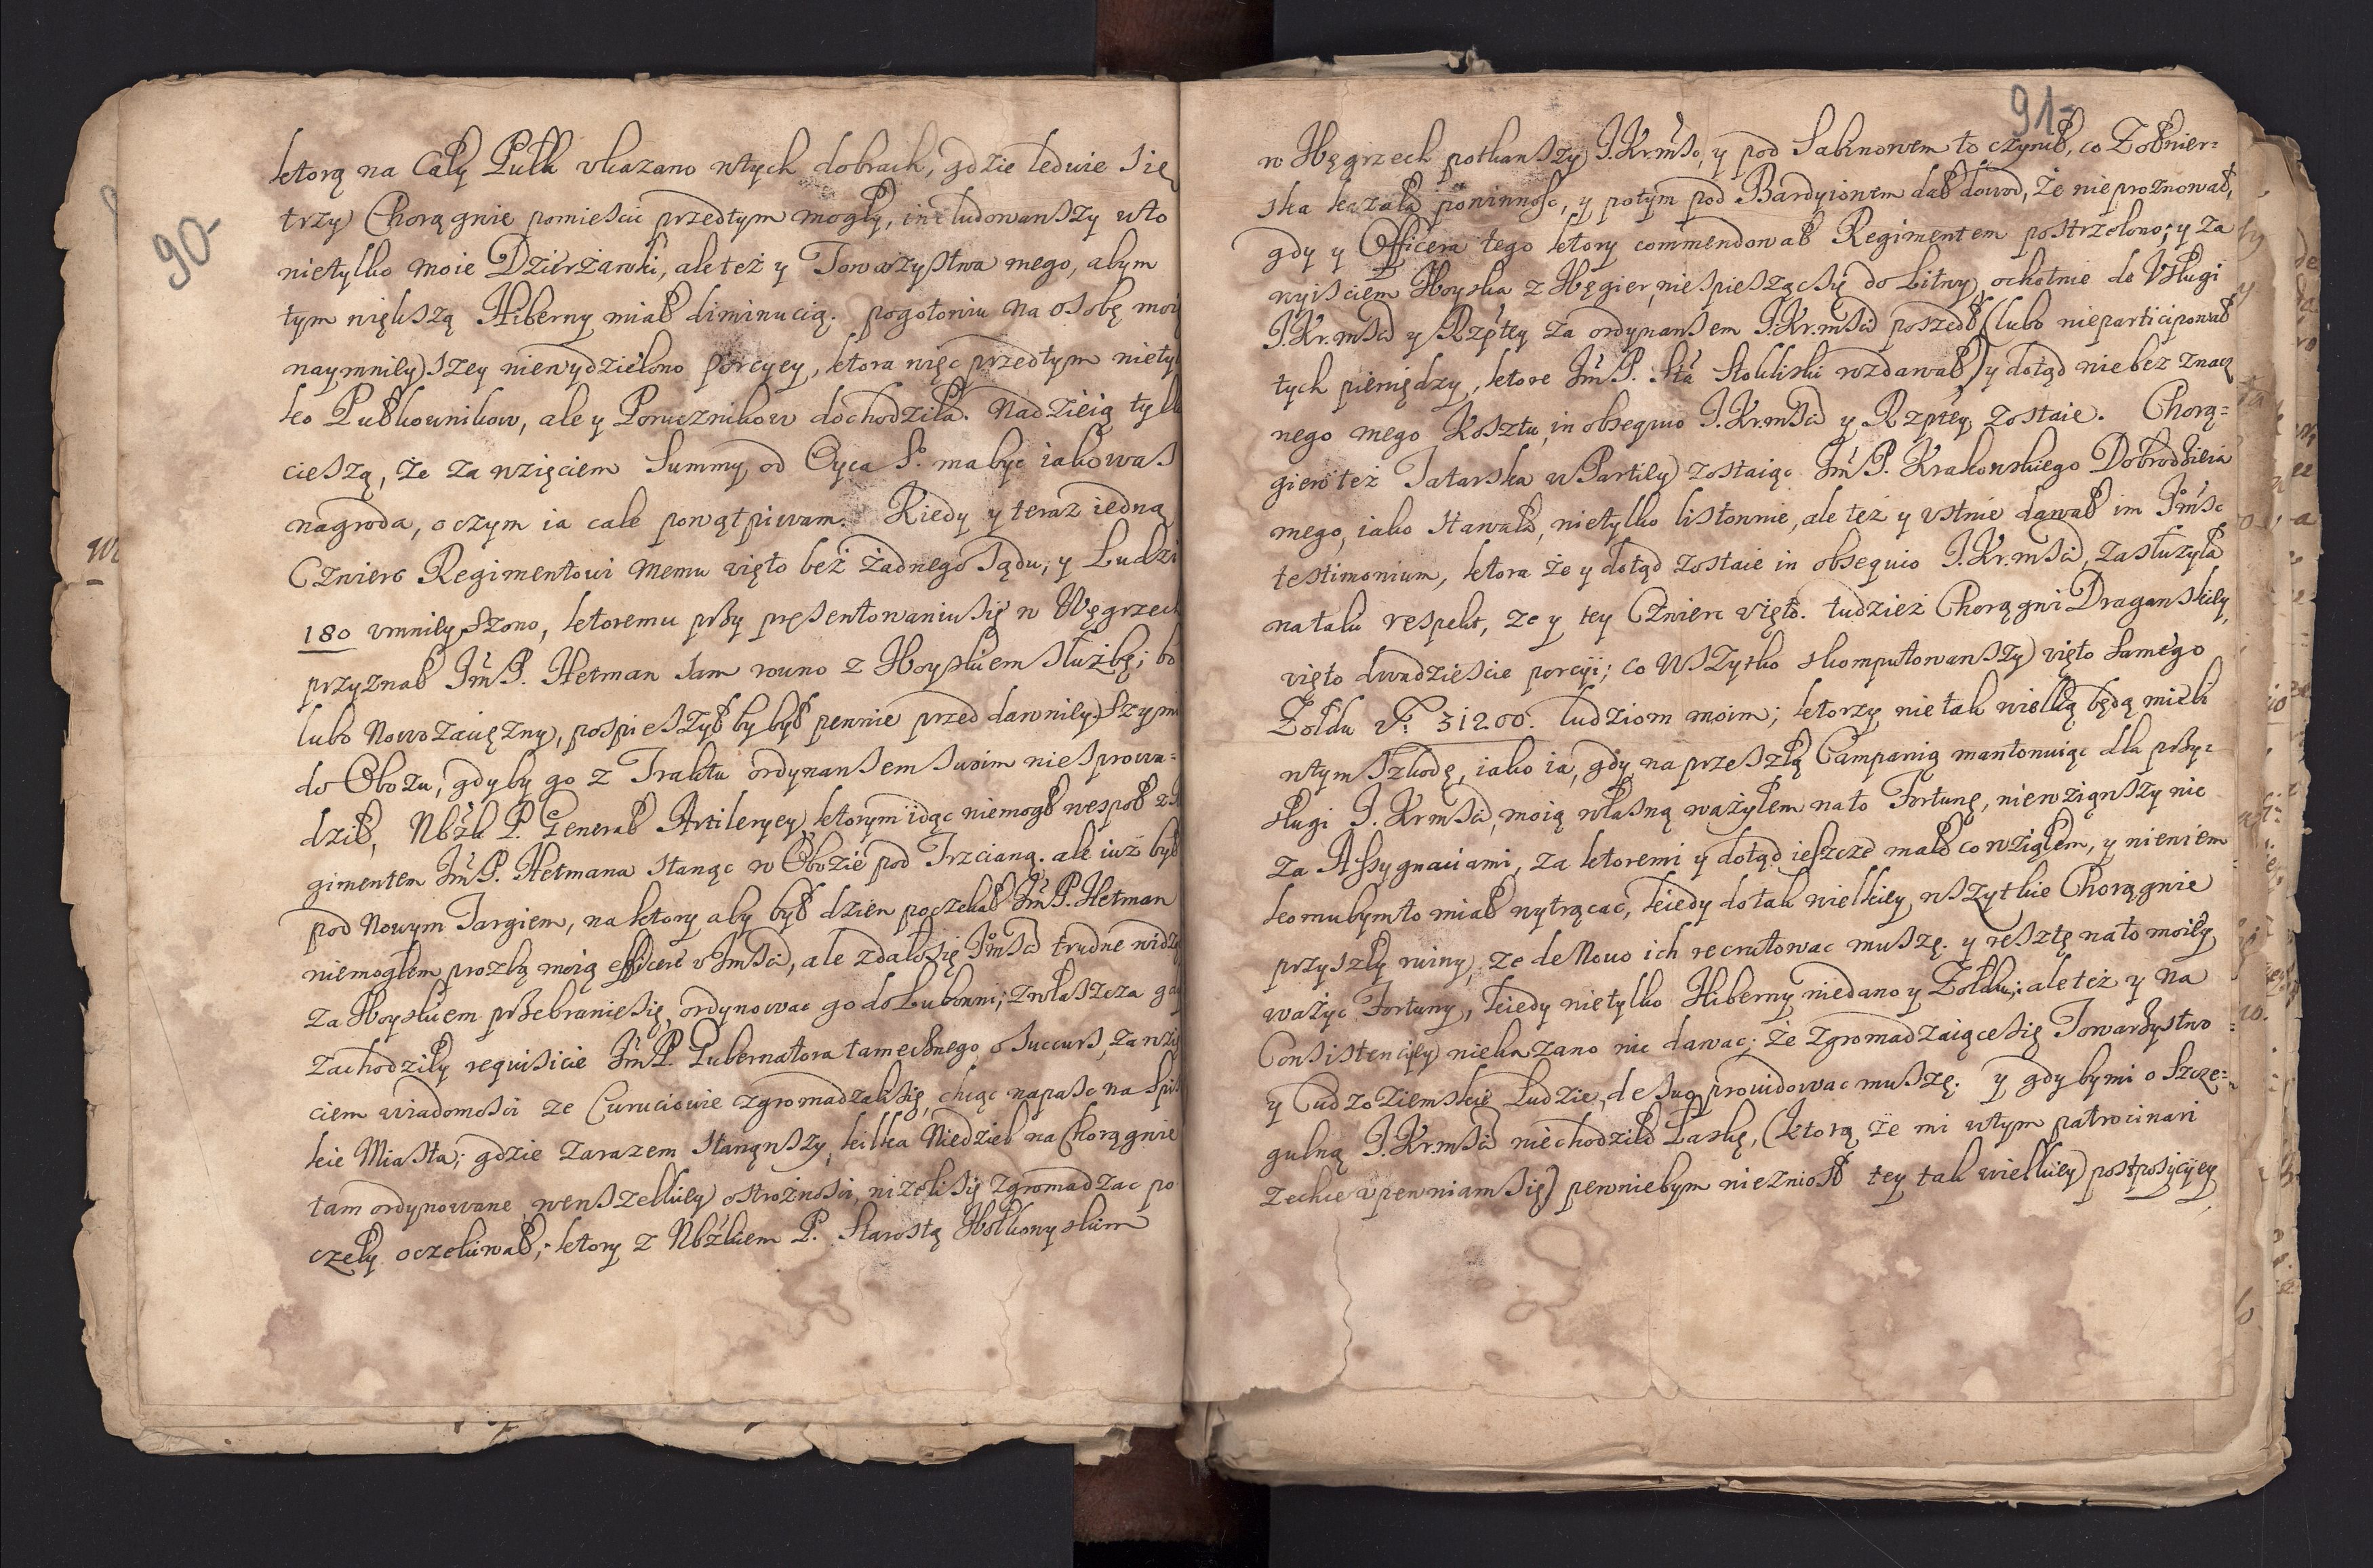 90
ktorą na Cały Pułk vkazano wtych dobrach, gdzie ledwie się
trzy Chorągnie pomiescic przedtym mogły, includowawszy wto
nietylko moie Dzierżawki, ale też y Towarzystwa mego, abym
tym większą Hiberny miał diminucią. pogotowiu na osobę moi
naymnieyszey niewydzielono porcyey, ktora więc przedtym niety
ko Pułkownikow, ale y Porucznikow dochodziła. Nadzieią tylk
cieszą, że za wzięciem Summy od Oyca S. ma byc iakowas
nagroda, o czym ia cale powątpiwam. Kiedy y teraz iedną
Czwierc Regimentowi memu vięto bez żadnego Sądu, y Ludzi
180 vmnieyszono, ktoremu przy presentowaniu się w Węgrzech
przyznał Jm̃ P. Hetman sam rowno z Woyskiem służbę; bo
lubo Nowozaciężny, pospieszył by był pewnie przed dawnieyszymi
do Obozu, gdyby go z Traktu ordynansem swoim niesprowa=
dził, Nbżk P. Generał Artileryey, ktorym idąc niemogł wespoł z
gimentem Jm̃ P. Hetmana stanąc w Obozie pod Trzcianą. ale iuż był
pod Nowym Targiem, na ktory aby był dzien poczekał Jm̃ P. Hetman
niemogłem prozbą moią efficere v Jmsci, ale zdało się Jmsci trudne widzą
za Woyskiem przebranie się, ordynowac go do Lubowni; zwłaszcza gdy
zachodziły requisicie Jm̃ P. Gubernatora tamecznego o Succurs, za wzię
ciem wiadomosci ze Curuciowie zgromadzali się, chcąc napasc na Spis
kie Miasta; gdzie zarazem stanąwszy, kilka Niedziel na Chorągnie
tam ordynowane wewszelkiey ostrożnosci, niżeli się zgromadzac po
czeły oczekiwał; ktory z Nbżkiem P. Starostą Wołkowyskim
91
w Węgrzech potkawszy J.Kr.mśc, y pod Sabinowem to czynił, co Zołnier=
ska kazała powinnosc, y potym pod Bardyiowem dał dowod, że nieproznował,
gdy y Officera tego ktory commendował Regimentem postrzelono; y za
wyisciem Woyska z Węgier, niespiesząc się do Litwy, ochotnie do Vsługi
J.Kr.mSci y Rzptey za ordynansem J.Kr.mSci poszedł (lubo nieparticipował
tych pieniędzy, ktore Jm̃ P. Sta Stokliski wzdawał) y dotąd nie bez znacz
nego mego Kosztu, in obsequio J.Kr.mSci y Rzptey zostaie. Chorą=
giew też Tatarska w Partiey zostaiąc Jm̃ P. Krakowskiego Dobrodzieia
mego, iako stawała, nietylko listownie, ale też y vstnie dawał im Jmsc
testimonium, ktora że y dotąd zostaie in obsequio J.Kr.mSci, zasłużyła
na taki respekt, ze y tey Czwierc vięto. tudzież Chorągni Draganskiey,
vięto dwadziescie porcyi; co wszysko skomputowawszy vięto samego
Zołdu Fł: 31200. ludziom moim; ktorzy nie tak wielką będą mieli
wtym Szkodę, iako ia, gdy na przeszłą Campanią mantenuiąc dla przy=
sługi J.KrmSci, moią własną ważyłem na to Fortunę, niewziąwszy nic
za Assygnaciami, za ktoremi y dotąd ieszcze mało co wziąłem, y niewiem
komubym to miał wytrącac, kiedy do tak wielkiey wszytkie Chorągnie
przyszły ruiny, ze de Novo ich recrutowac muszę. y resztę na to moiey
ważyc Fortuny, kiedy nietylko Hiberny niedano y Zołdu; ale też y na
Consistenciey niekazano nic dawac; że zgromadzaiące się Towarzystwo
y Cudzoziemskie Ludzie, de suo prowidowac muszę. y gdyby mi o Szcze=
gulną J.Kr.mSci niechodziło Łaskę, (ktorą że mi wtym patrocinari
zechce vpewniam się) pewniebym niezniosł tey tak wielkiey postposicyey